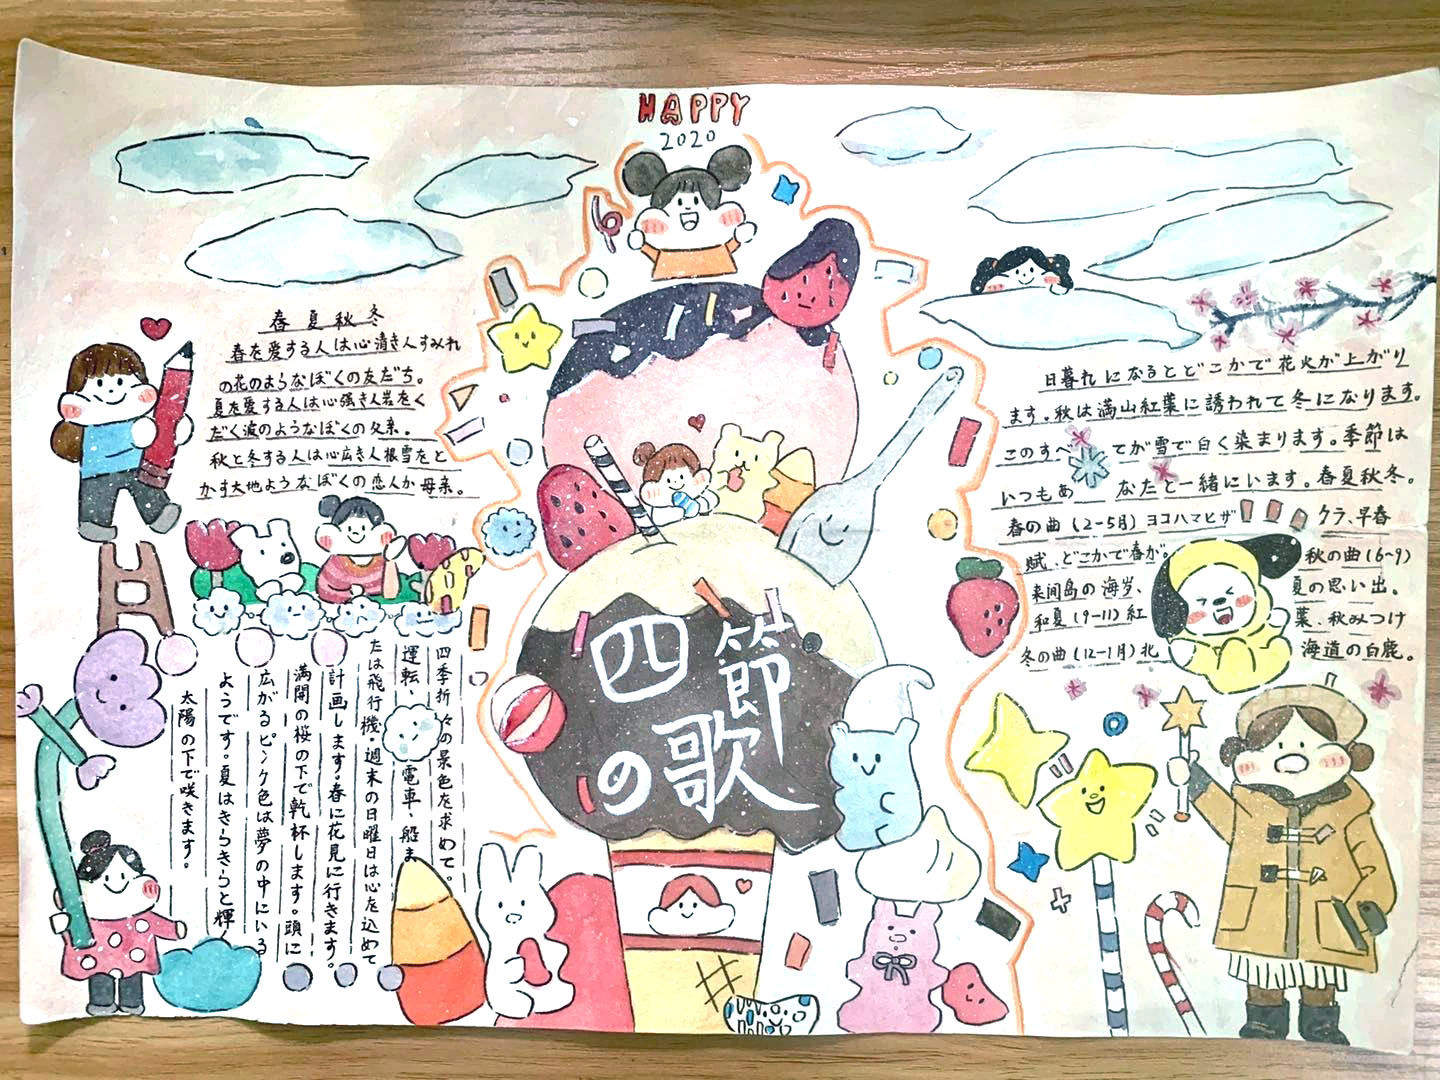 HAPPY
2020
四節
の歌
春夏秋冬
春を愛する人は心清き人すみれ
の花のようなぼくの友だち。
夏を愛する人は心強き人岩をく
だく波のようなぼくの父亲。
秋と冬する人は心広き人根雪をと
かす大地ようなぼくの恋人か母亲。
四季折々の景色を求めて。
運転、電車、船ま
たは飛行機・週末の日曜日は心を込めて
計画します。春に花見に行きます。
満開の桜の下で乾杯します。頭に
広がるピンク色は夢の中にいる
ようです。夏はきらきらと輝
太陽の下で咲きます。
日暮れになるとどこかで花火が上がり
ます。秋は満山紅葉に誘われて冬になります。
このすべてが雪で白く染まります。季節は
いつもあなたと一緒にいます。春夏秋冬。
春の曲(2-5月)ヨコハマヒザクラ、早春
賦、どこかで春が。秋の曲(6~9)
来间島の海岁、夏の思い出。
和夏(9-11)紅葉、秋みつけ
冬の曲(12-1月)北海道の白鹿。